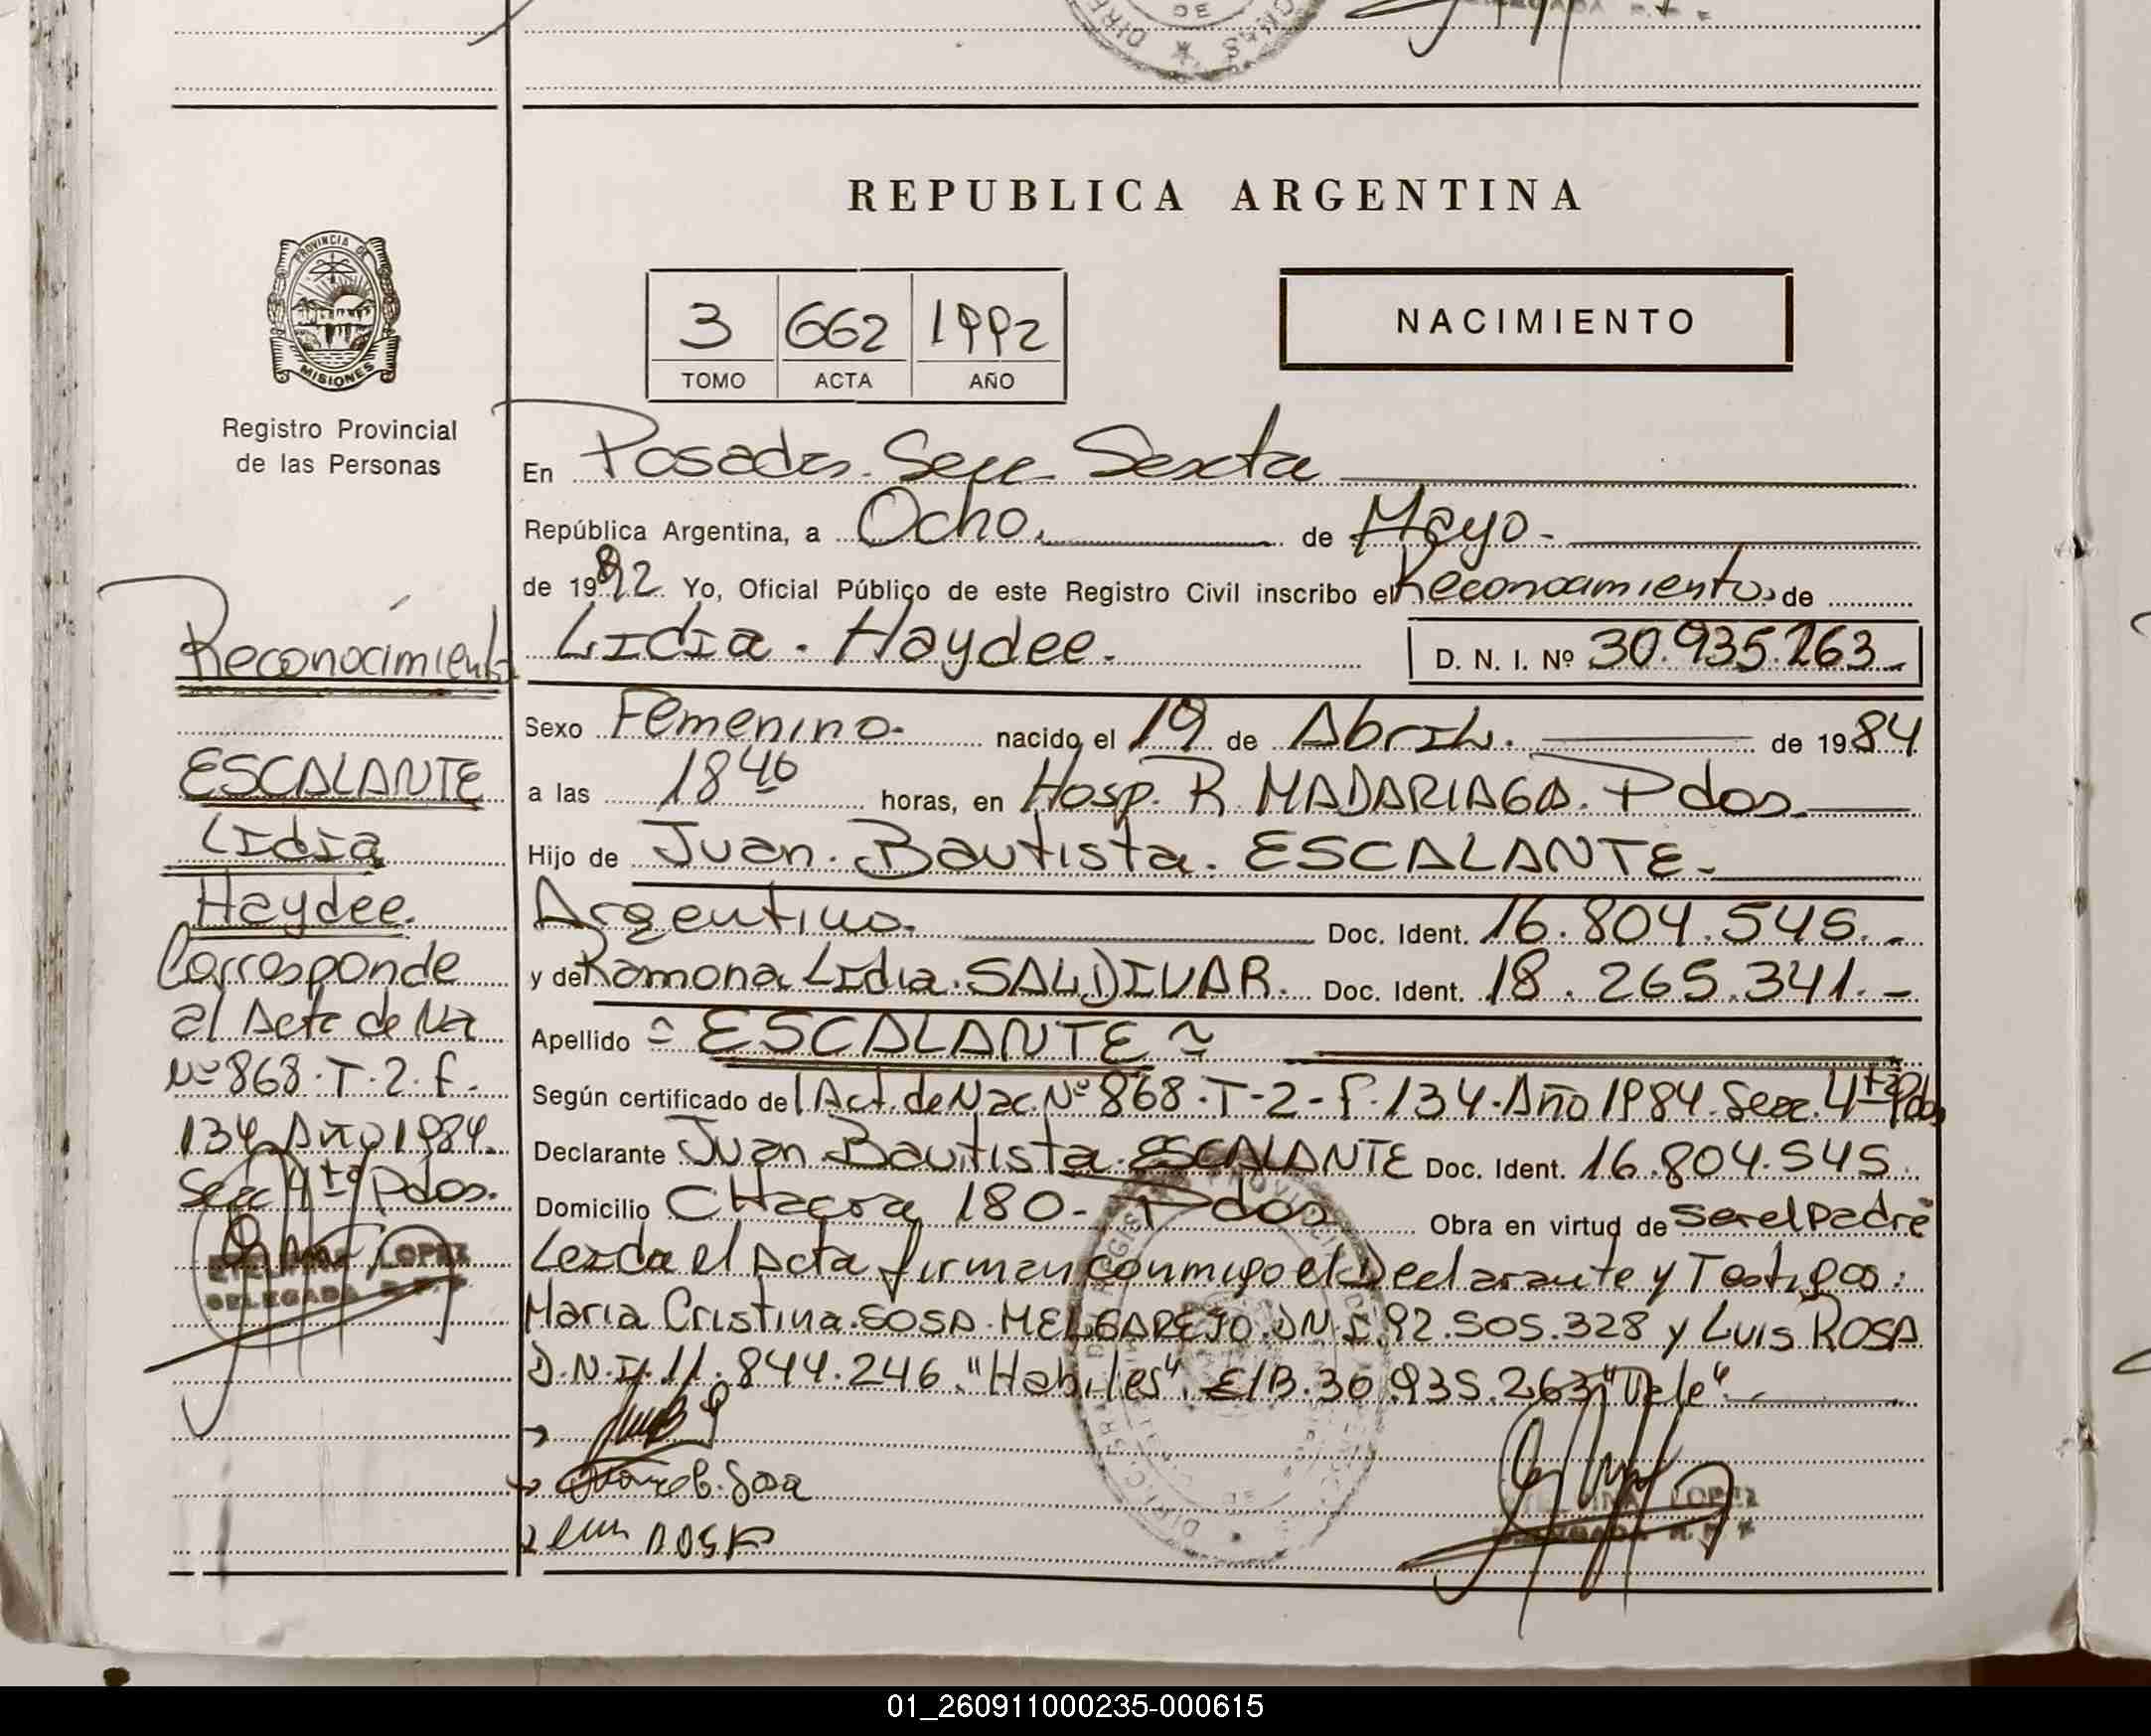 REPUBLICA ARGENTINA
PROVINCIA DE
MISIONES
Registro Provincial
de las Personas
3 662 1992
TOMO ACTA AÑO
NACIMIENTO
En Posadas. Secc. Sexta
República Argentina, a Ocho. de Mayo.
de 1992. Yo, Oficial Público de este Registro Civil inscribo el Reconocimiento de
Lidia. Haydee. D. N. I. Nº 30.935.263
Sexo Femenino. nacido el 19 de Abril. de 1984
a las 18 40 horas, en Hosp. R. MADARIAGA. Pdas.
Hijo de Juan. Bautista. ESCALANTE.
Argentino. Doc. Ident. 16.804.545.-
y de Ramona Lidia. SALDIVAR. Doc. Ident. 18.265.341.-
Apellido = ESCALANTE =
Según certificado del Act. de Nac. Nº 868. T-2-F. 134. Año 1984. Secc. 4ta Pdas
Declarante Juan Bautista. ESCALANTE Doc. Ident. 16.804.545.
Domicilio CHacra 180- Pdas Obra en virtud de Ser el Padre
Leida el Acta firman conmigo el Declarante y Testigos:
Maria Cristina. SOSA. MELGAREJO. DN.I. 92.505.328 y Luis ROSA
D.N.I. 11.844.246. "Habiles". E/B. 30.935.263 "Vale"
Reconocimiento
ESCALANTE
Lidia
Haydee.
Corresponde
al Acta de Na
Nº 868. T. 2. F.
134. Año 1984.
Secc 4ta Pdas.
LOPEZ
DELEGADA
LOPEZ
01_260911000235-000615